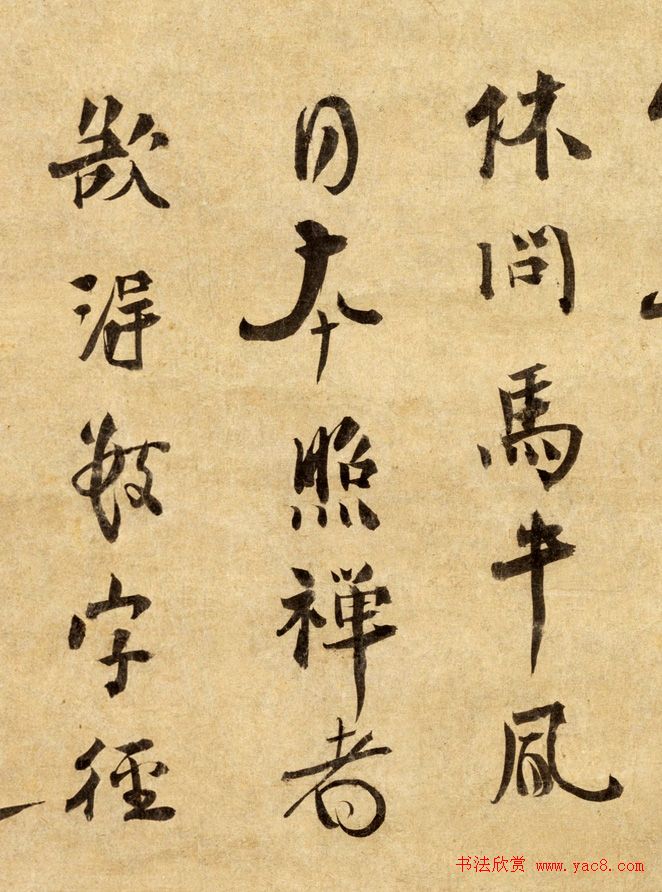 休問馬牛風
日本照禅者
欲得数字径
书法欣赏 www.yac8.com